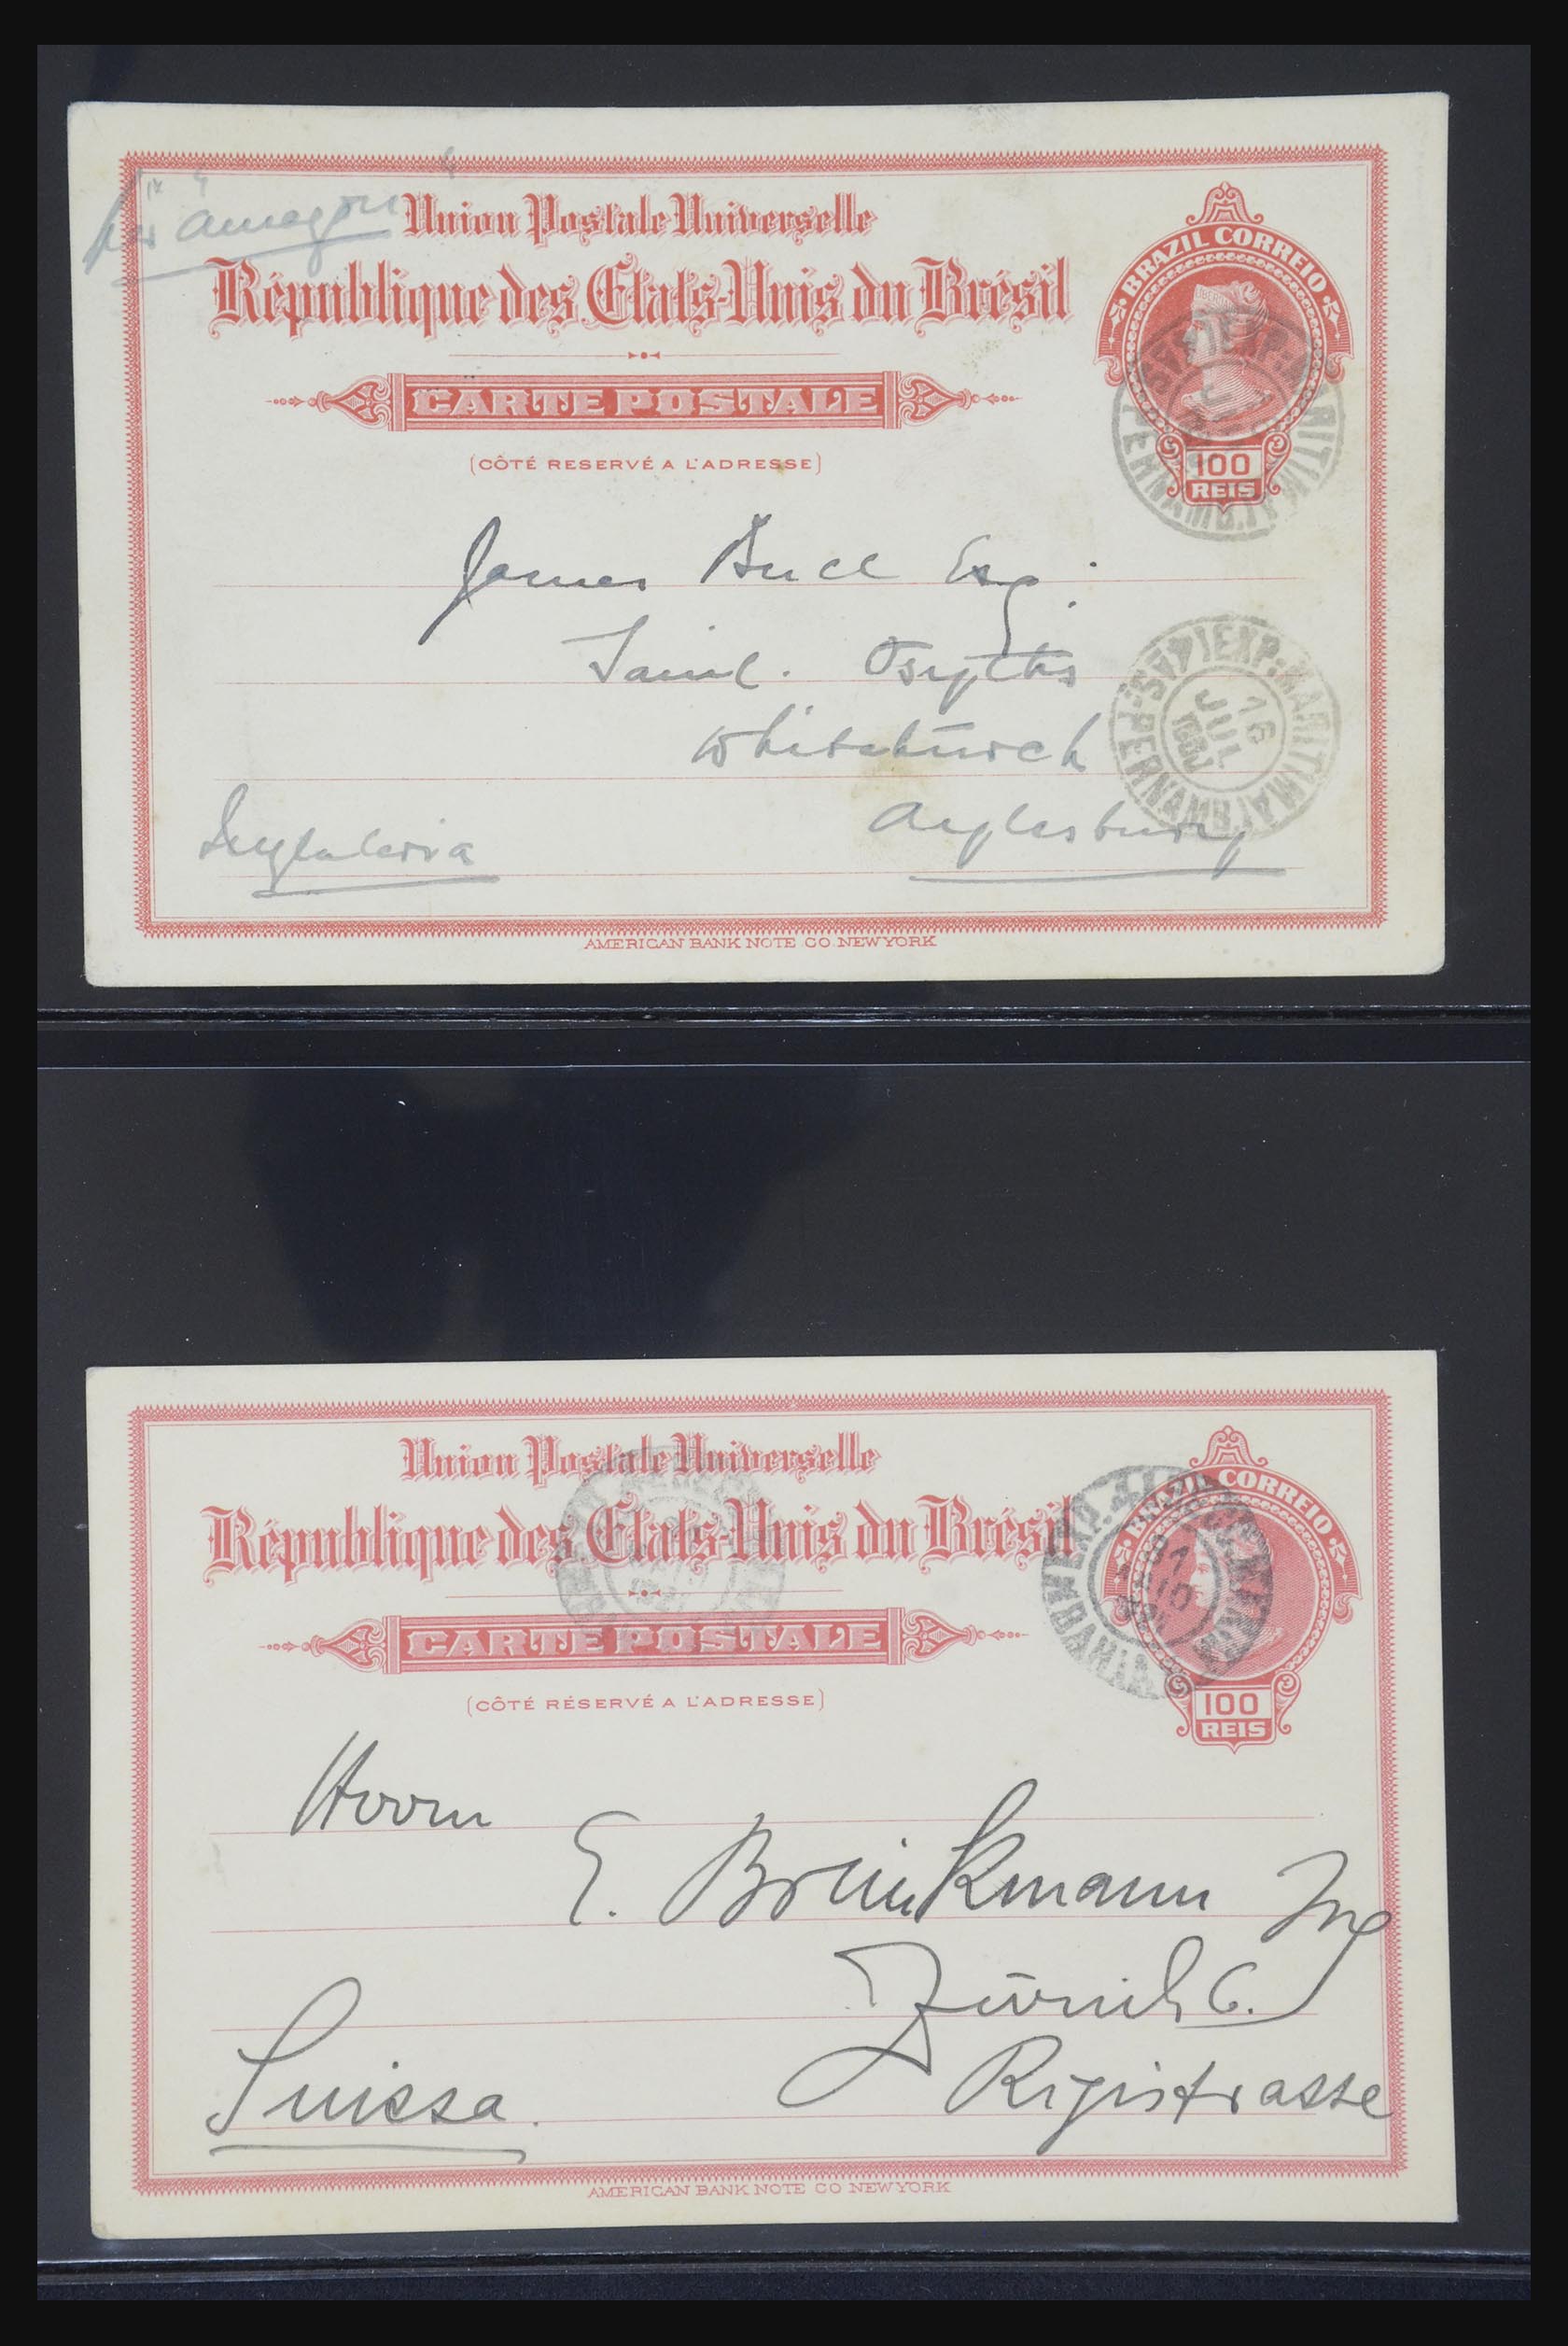 per Amazon
Union Postale Universelle
République des Etats-Unis du Brésil
BRAZIL CORREIO
CARTE POSTALE
(CÔTÉ RESERVÉ A L'ADRESSE)
100
REIS
James Buck Esq.
Saint. Osyths
Whitchurch
Aylesbury
Inglaterra
EXP: MARITIMA
PERNAMB
16
JUL
AMERICAN BANK NOTE CO. NEW YORK
Union Postale Universelle
République des Etats-Unis du Brésil
BRAZIL CORREIO
CARTE POSTALE
(CÔTÉ RÉSERVÉ A L'ADRESSE)
100
REIS
Herrn
E. Brinkmann Ing
Zürich 6.
Rigistrasse
Suissa.
AMERICAN BANK NOTE CO NEW YORK